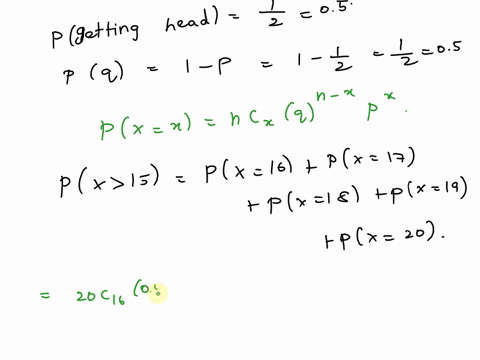 P(getting head) = 1/2 = 0.5.
P(q) = 1-P = 1 - 1/2 = 1/2 = 0.5
P(x=x) = nCx (q)^n-x p^x.
P(x>15) = P(x=16) + P(x=17)
+ P(x=18) + P(x=19)
+ P(x=20).
= 20C16 (0.